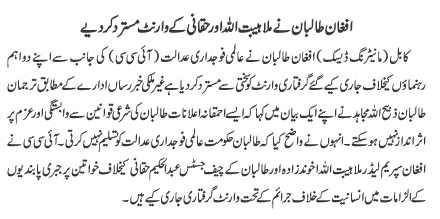 افغان طالبان نے ملا ہیبت اللہ اور حقانی کے وارنٹ مسترد کر دیے
کابل (مانیٹرنگ ڈیسک) افغان طالبان نے عالمی فوجداری عدالت (آئی سی سی) کی جانب سے اپنے دو اہم
رہنماؤں کیخلاف جاری کیے گئے گرفتاری وارنٹ کو سختی سے مسترد کر دیا ہے غیر ملکی خبر رساں ادارے کے مطابق ترجمان
طالبان ذبیح اللہ مجاہد نے اپنے ایک بیان میں کہا کہ ایسے احمقانہ اعلانات طالبان کی شرعی قوانین سے وابستگی اور عزم پر
اثر انداز نہیں ہو سکتے۔ انہوں نے واضح کیا کہ طالبان حکومت عالمی فوجداری عدالت کو تسلیم نہیں کرتی۔ آئی سی سی نے
افغان سپریم لیڈر ملا ہیبت اللہ اخوندزادہ اور طالبان کے چیف جسٹس عبدالحکیم حقانی کیخلاف خواتین پر جبری پابندیوں
کے الزامات میں انسانیت کے خلاف جرائم کے تحت وارنٹ گرفتاری جاری کیے ہیں۔